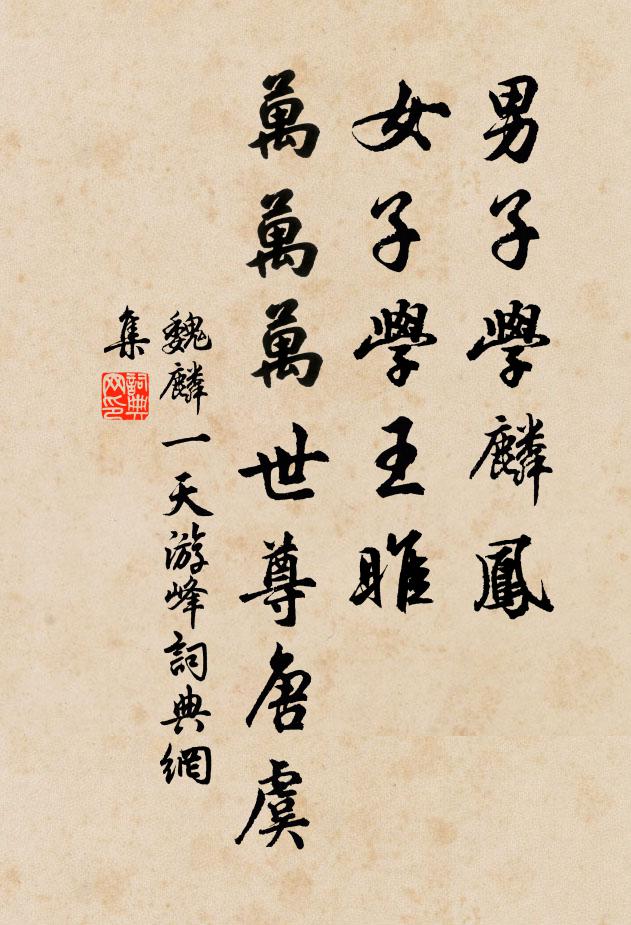 男子學麟鳳
女子學王雎
萬萬萬世尊唐虞
魏麟一天游峰詞典網
集
詞典网印